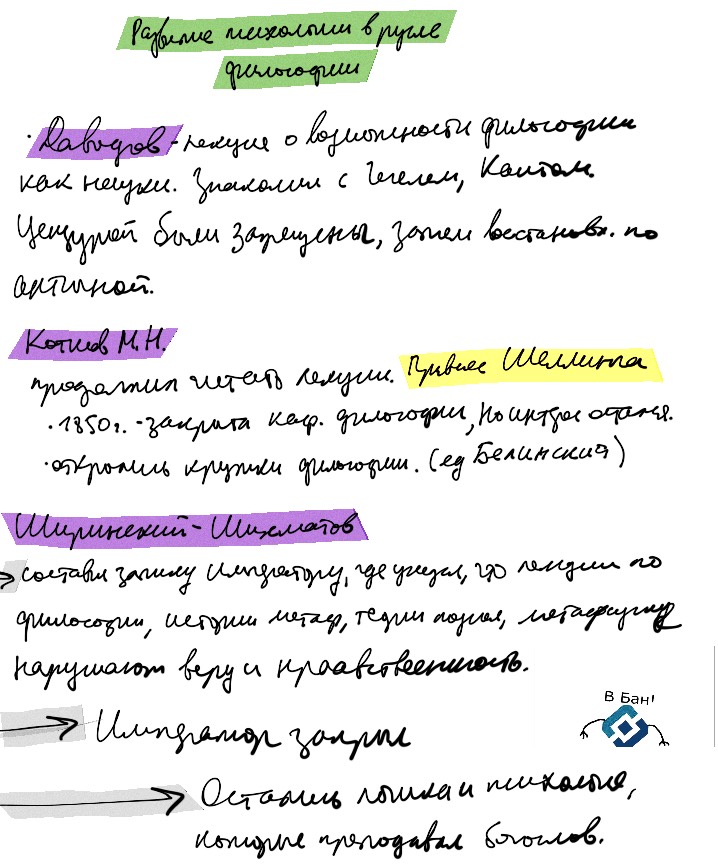 Развитие психологии в русле
философии
· Давыдов - лекции о возможности философии
как науки. Знакомил с Гегелем, Кантом.
Цензурой были запрещены, затем восстановл. по
античной.
Котков М.Н.
продолжил читать лекции. Привнес Шеллинга
· 1850г. - закрыта каф. философии, но интерес остался.
· открылись кружки философии. (ед Белинский)
Ширинский-Шихматов
→ составил записку императору, где указал, что лекции по
философии, истории метаф, теории познан, метафизике
нарушают веру и нравственность.
В Бан!
→ Император закрыл
→ Остались логика и психология,
которые преподавал богослов.